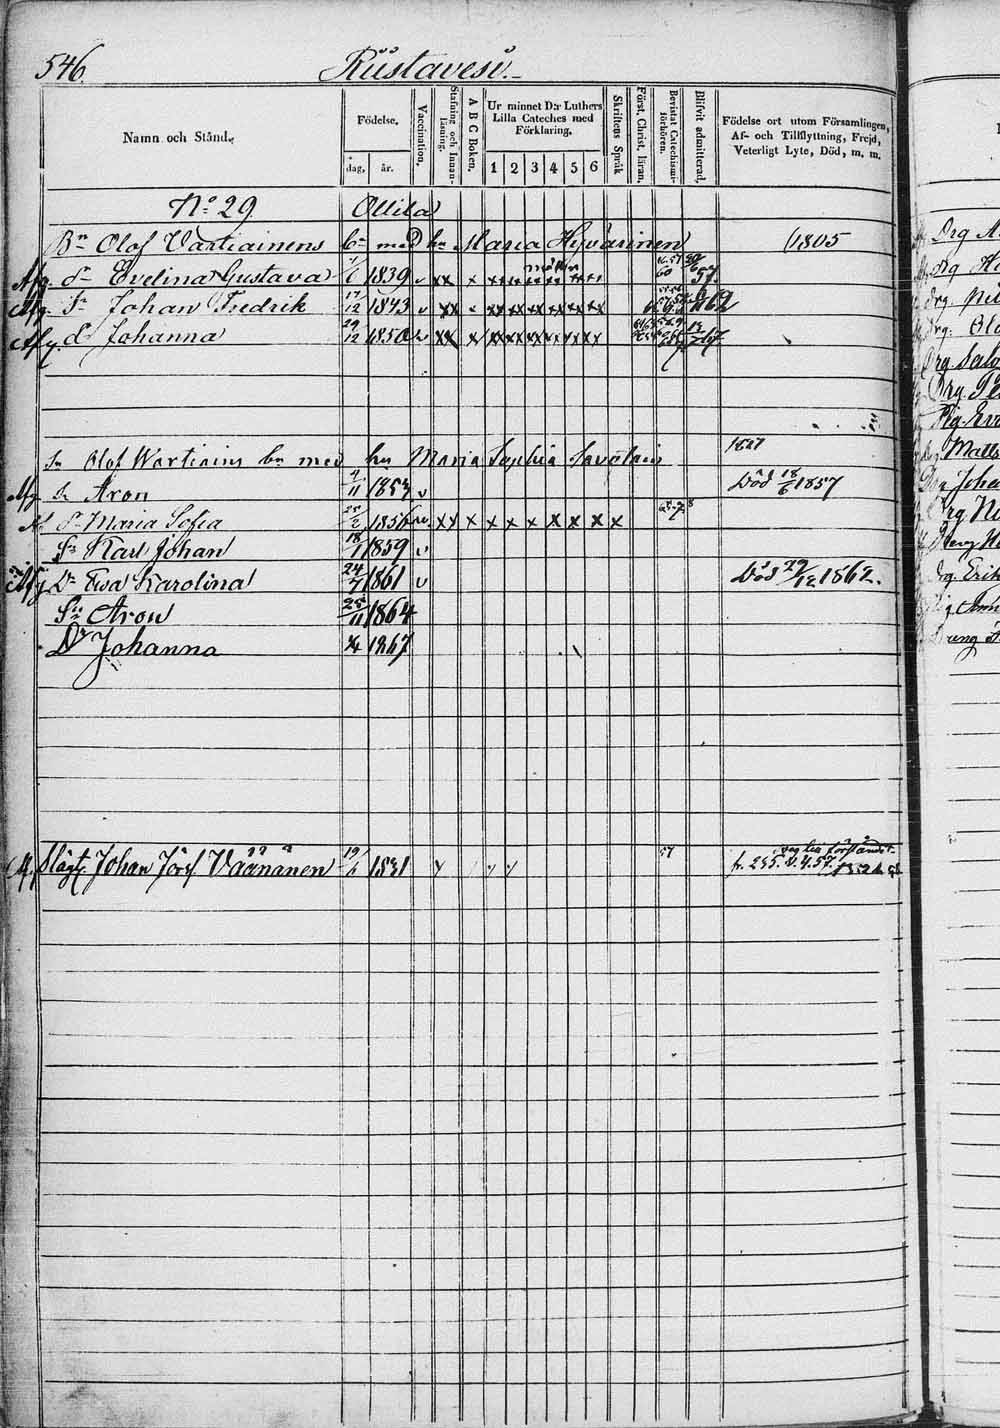 546.
Rüstavesi.
Namn och Stånd.
Födelse.
dag. år.
Vaccination.
Stafning och Innan-läsning.
A B C Boken.
Ur minnet D:r Luthers
Lilla Cateches med
Förklaring.
1 2 3 4 5 6
Skriftens Språk
Först. Christ. läran.
Bevistat Catechismi-förhören.
Blifvit admitterad.
Födelse ort utom Församlingen,
Af- och Tillflyttning, Frejd,
Veterligt Lyte, Död, m. m.
No 29 Ollila
Bn Olof Vartiainens bn med hu Maria Hyvärinen 1805
Afg. dr Evelina Gustava 1839 v xx x 57
Afg. Sn Johan Fredrik 17/12 1843 v xx x 1862
Afg d Johanna 29/12 1850 v xx x
Sn Olof Wartiains bn med hu Maria Sophia Savolain 1827
Afg Sn Aron 1853 v Död 18/6 1857
dr Maria Sofia 1856 xx x x x x x x x x
Sn Karl Johan 18/1 1859 v
Afg Dr Ewa Karolina 24/7 1861 v Död 29/12 1862.
Sn Aron 25/11 1864
Dr Johanna 1867
Johan Jos. Väänänen 19/6 1831 57 fr. 255.